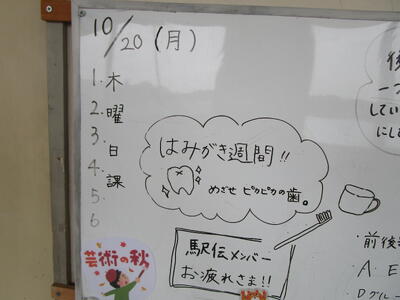 10/20(月)
1. 木
2. 曜
3. 日
4. 課
5.
6
はみがき週間!!
めざせ ピカピカの歯。
駅伝メンバー
お疲れさま!!
芸術の秋
後
一つ
してい
にし
・前後
A. E
Dグルー